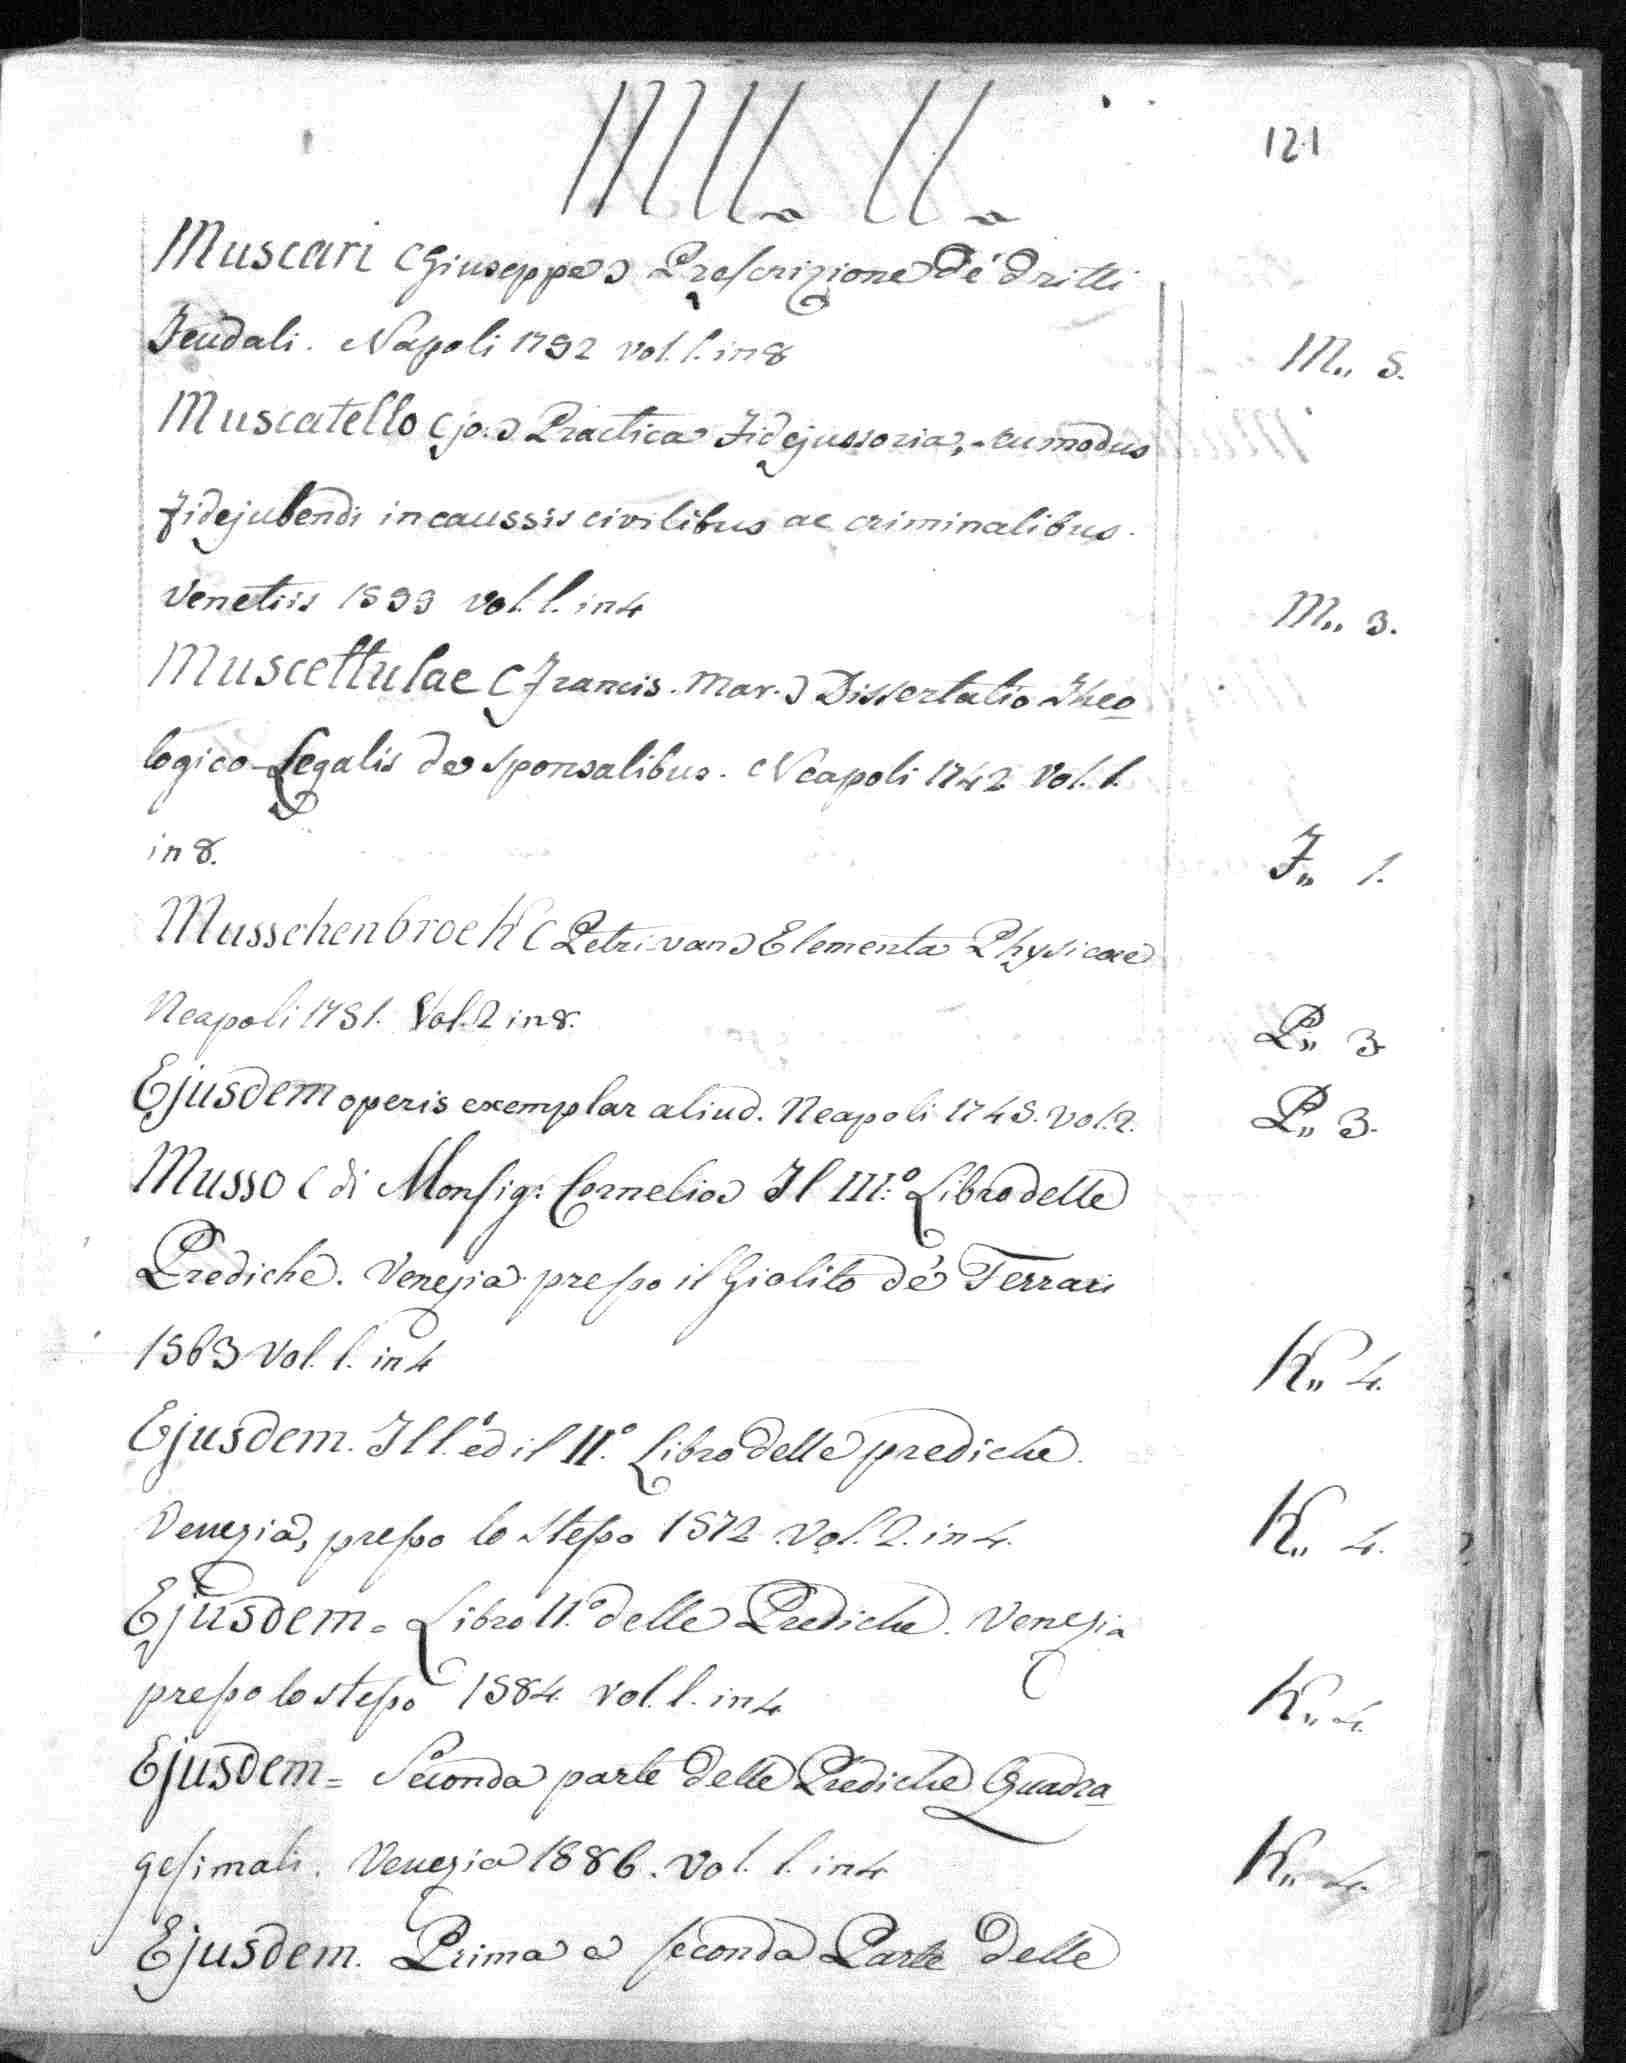 MU. U.
121
Muscari (Giuseppe) Prescrizione de' dritti
Feudali. Napoli 1792 vol. 1. in 8
M,, 5.
Muscatello (jo:) Practica Fidejussoria, seu modus
fidejubendi in caussis civilibus ac criminalibus.
Venetiis 1599 vol. 1. in 4
M,, 3.
Muscettulae (Francis. Mar.) Dissertatio Theo
logico-Legalis de sponsalibus. Neapoli 1742 vol. 1.
in 8.
F,, 1.
Musschenbroek (Petri van) Elementa Physicae
Neapoli 1751. Vol. 2 in 8.
P,, 3
Ejusdem operis exemplar aliud. Neapoli 1745. vol. 2.
P,, 3.
Musso (di Monsig: Cornelio) Il III.º Libro delle
Prediche. Venezia presso il Giolito de' Ferrari
1563 Vol. 1. in 4
K,, 4.
Ejusdem. Il I.º ed il II.º Libro delle prediche.
Venezia, presso lo stesso 1572 Vol. 2. in 4.
K,, 4.
Ejusdem = Libro II.º delle Prediche. Venezia
presso lo stesso 1584 vol. 1. in 4
K,, 4.
Ejusdem = Seconda parte delle Prediche Quadra
gesimali. Venezia 1586. Vol. 1. in 4
K,, 4.
Ejusdem. Prima e seconda Parte delle